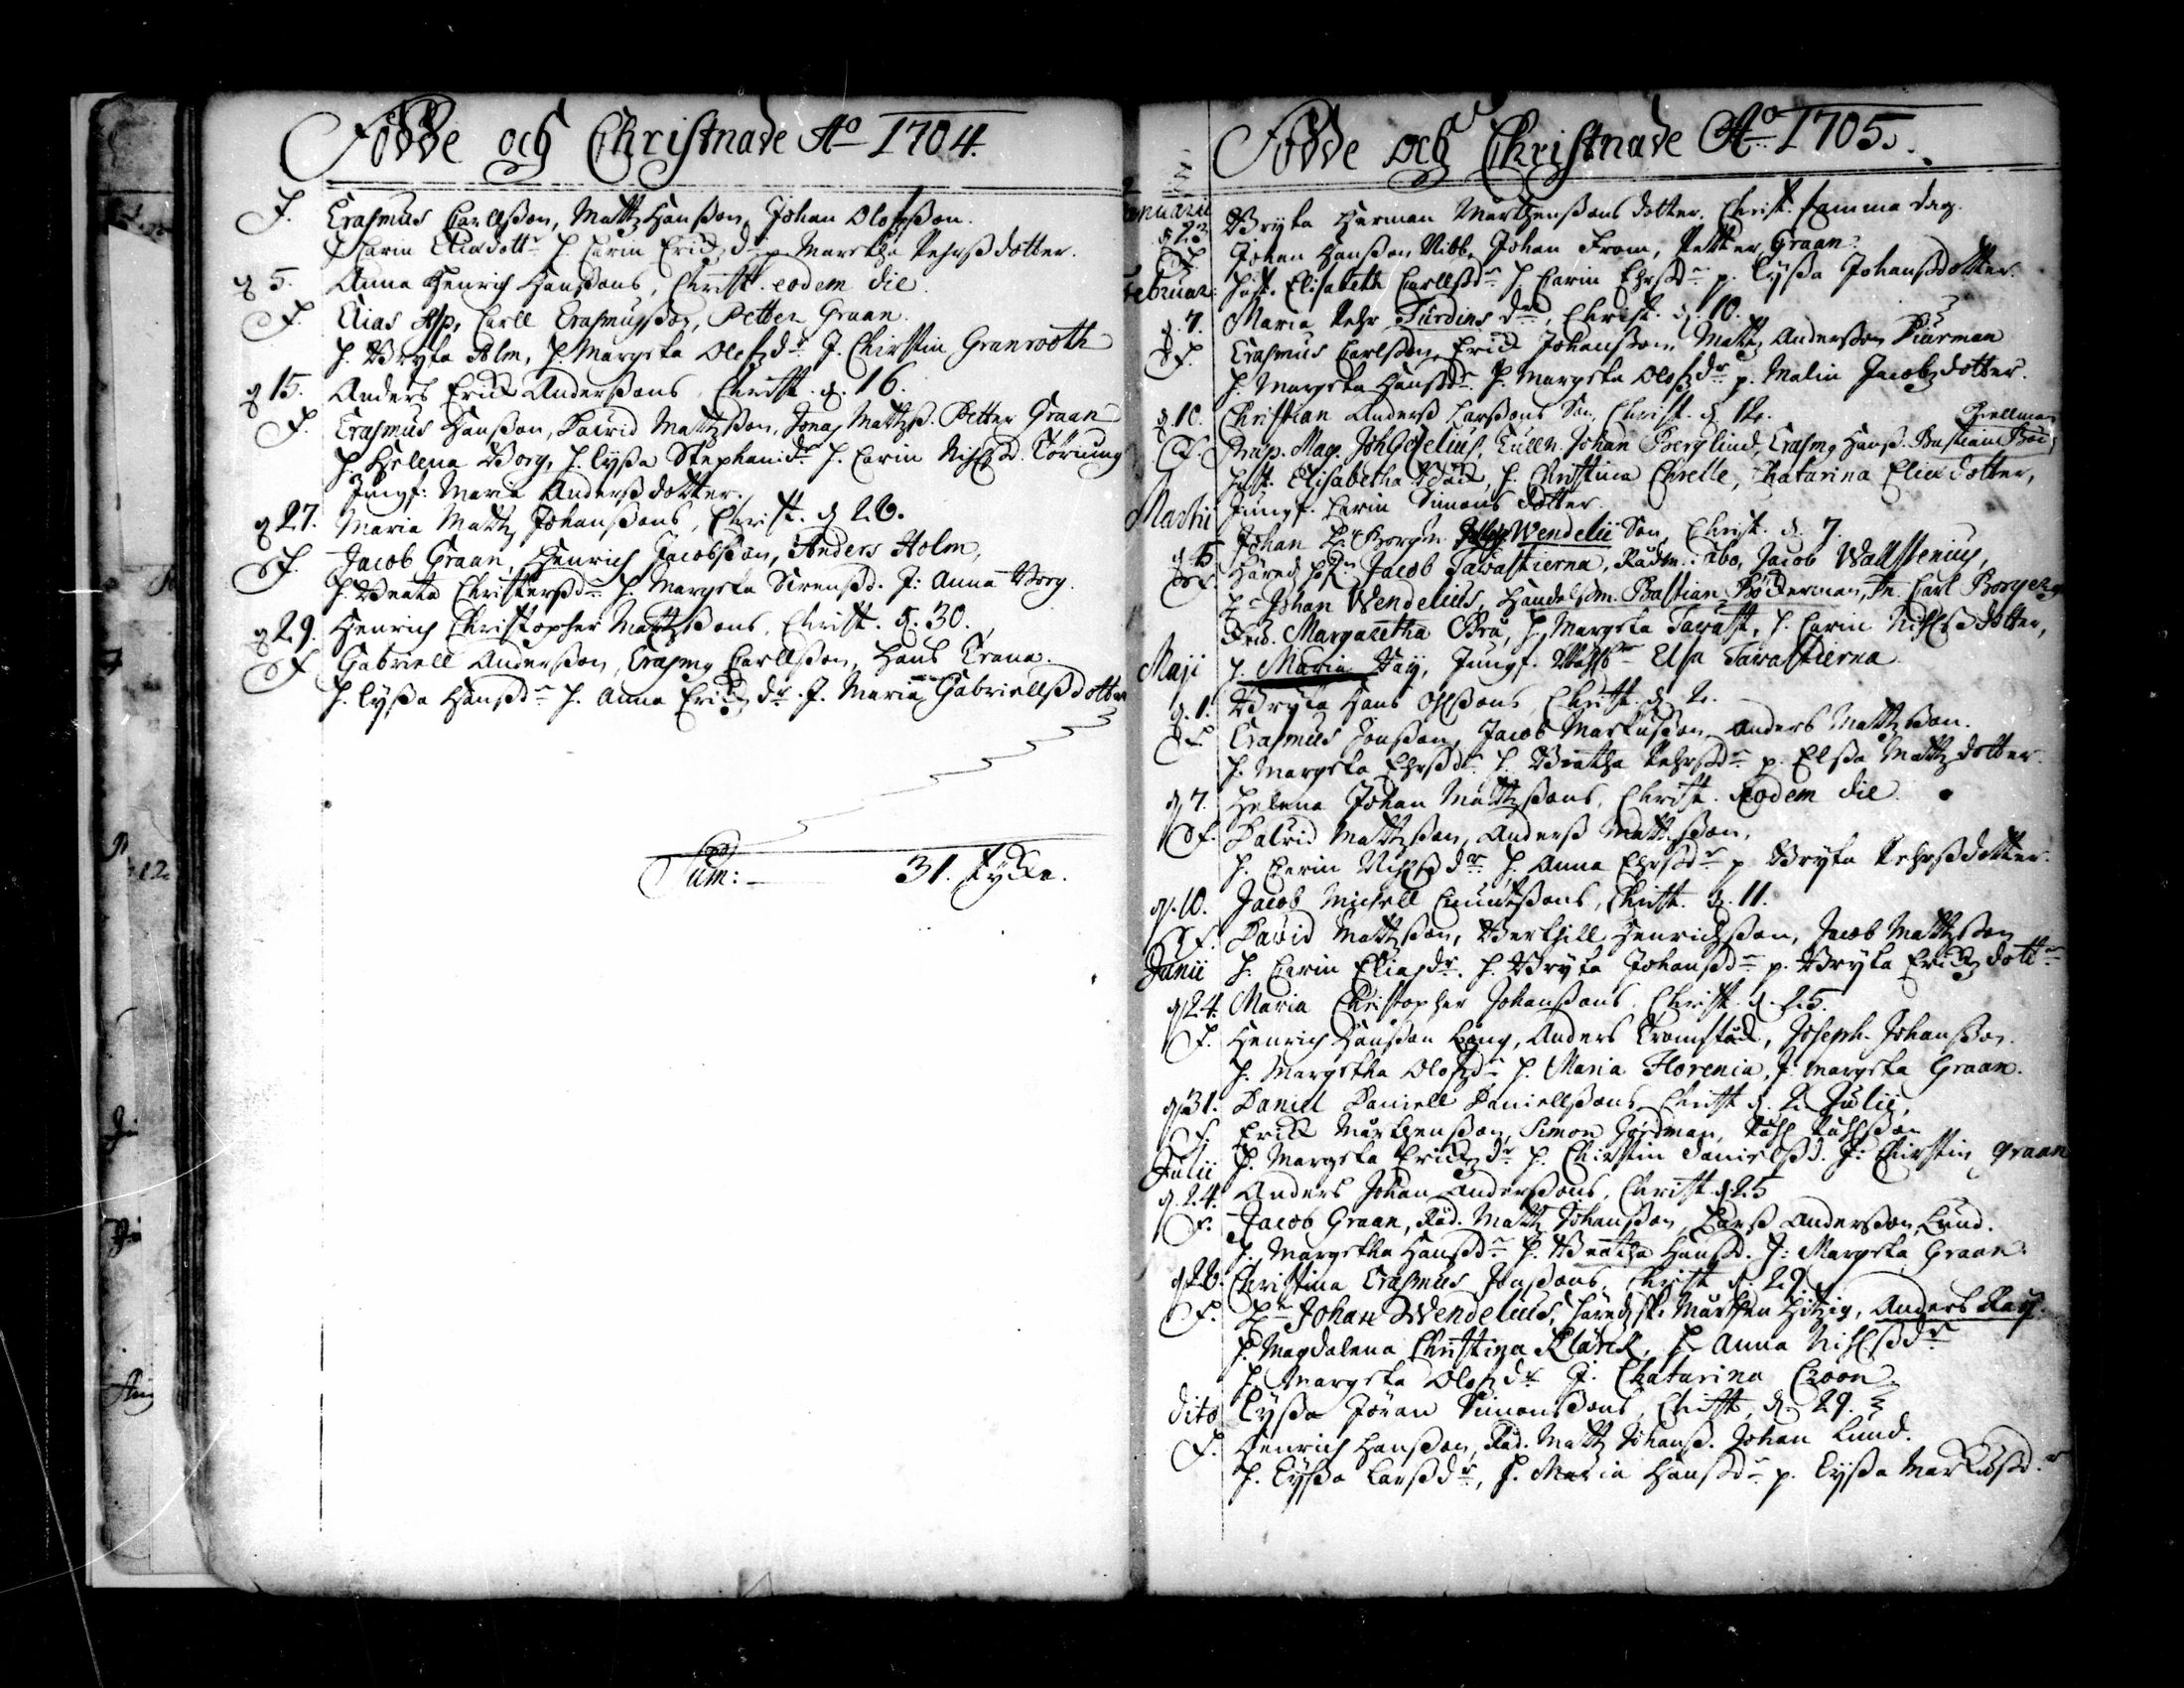 Födde och Christnade Aº 1704.
F. Erasmus Carllßon, Mattz Hanßon, Johan Oloffßon.
H. Carin Eliædottr H. Carin Erichzdr p. Margetha Pehrßdotter.
d 5. Anna Henrich Hanßons, Christ. eodem die.
F. Elias Alp, Carll Erasmußon, Petter Graan.
H. Bryta Alm, H. Margeta Olofzdr J. Chirstin Granrooth
d 15. Anders Erich Anderßons, Christ. d. 16.
F. Erasmus Hanßon, David Mattzßon, Jonas Mattzß. Petter Graan
H. Helena Borg, H. Lyßa Stephanidr H. Carin Nielßd.
Jungf: Maria Anderßdotter.
d 27. Maria Mattz Johanßons, Christ. d 28.
F. Jacob Graan, Henrich Jacobßon, Anders Holm,
H. Beata Christersdr H. Margeta Sirenßd. J: Anna Borg.
d 29. Henrich Christopher Mattzßons, Christ. d. 30.
F. Gabriell Anderßon, Erasmg Carllßon, Hans Trana.
H. Lyßa Hanßdr H. Anna Erichzdr J. Maria Gabriellßdotter
Sum: 31. stycke.
Födde och Christnade Aº 1705.
Januarii
d 23. Bryta Herman Mårtenßons dotter. Christ. samma dag.
F. Johan Hanßon Nibb, Johan From, Petter Graan.
Februar: Elisabeth Carllßdr H. Carin Ehrßdr p. Lyßa Johanßdotter.
d. 7. Maria Pehr Turdins dr, Christ. d. 10.
F. Erasmus Carlßon, Erich Johanßon, Mattz Anderßon
H. Margeta Hanßdr H. Margeta Olofzdr p. Malin Jacobzdotter.
d. 10. Christian Anderß Larßons Son, Christ. d. 12.
F. Mag. Joh Gezelius, Johan Berglind, Erasmg Hanß. Bastian
Elisabetha, H. Christina, Chatarina Eliædotter,
Martii Jungf. Carin Simons dotter
Johan Wendelii Son, Christ. d. 7.
F. Jacob Tawastierna, Rådm. i Åbo, Jacob Wallstenius,
Hr Johan Wendelius, Handelsm. Bastian, Carl
Fru. Margaretha, H. Margeta Tawast, H. Carin dotter,
Maji H. Maria, Jungf. Elsa Tawastierna
d. 1. Bryta Hans Olßons, Christ. d. 2.
F. Erasmus Jonßon, Jacob Markusßon, Anders Mattzßon.
H. Margeta Ehrßdr H. Beatha Pehrßdr p. Elßa Mattzdotter.
d 7. Helena Johan Mattzßons, Christ. Eodem die.
F. David Mattzßon, Anderß Mattzßon,
H. Carin Nielßdr H. Anna Ehrßdr p Bryta Pehrßdotter.
d. 10. Jacob Michell Knutßons, Christ. d. 11.
F. David Mattzßon, Bertill Henrichßon, Jacob Mattzßon
Junii H. Carin Eliædr. H. Bryta Johanßdr p. Bryta Erichzdottr
d 24. Maria Christopher Johanßons, Christ. d. 25.
F. Henrich Hanßon Bång, Anders, Joseph Johanßon.
H. Margetha Olofzdr H. Maria Florenia, J. Margeta Graan.
d 31. Daniel Daniell Daniellßons, Christ. d. 2. Julii.
F. Erich Mårtenßon, Simon
Julii H. Margeta Erichzdr H. Chirstin Danielßd. J. Chirstin Graan
d. 24. Anders Johan Anderßons, Christ. d 25
F. Jacob Graan, Råd. Mattz Johanßon, Larß Anderßon Lund.
H. Margetha Hanßdr H. Beatha Hanßd. J: Margeta Graan.
d 28. Christina Erasmus Jonßons, Christ. d. 29.
F. Hr Johan Wendelius, Mårten Hitzig, Anders
H. Magdalena Christina Klärck, H. Anna Nielßdr
H. Margeta Olofzdr J. Chatarina Croon.
Dito Lyßa Jöran Simonßons, Christ. d. 29.
F. Henrich Hanßon, Råd. Mattz Johanß. Johan Lund.
H. Lyßa Larßdr, H. Maria Hanßdr p. Lyßa Markusßdr